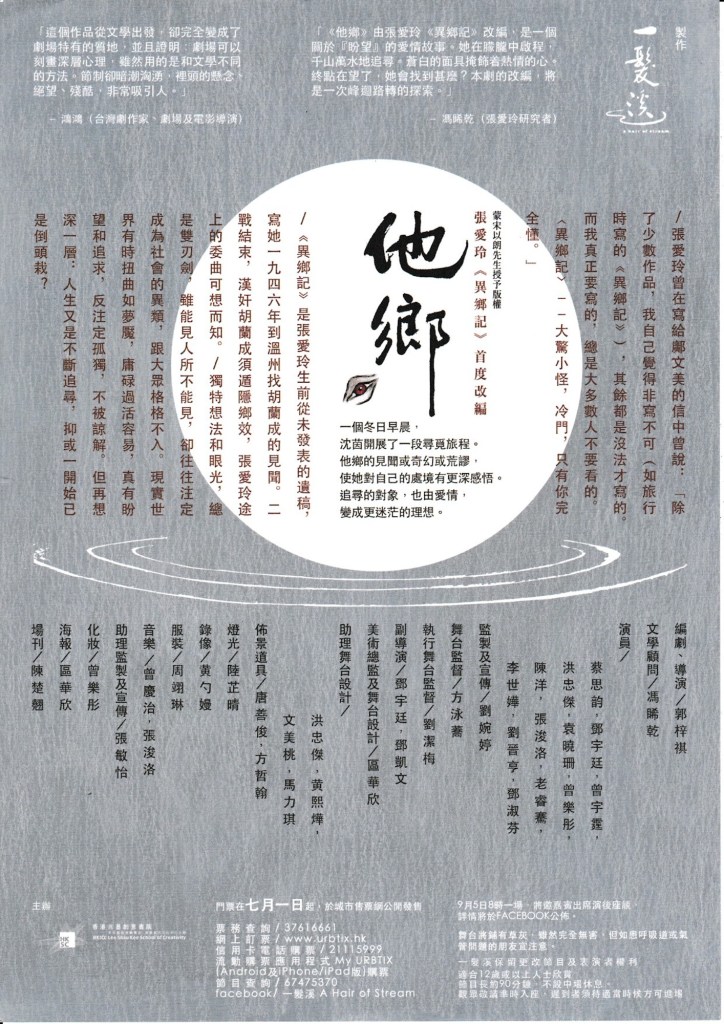 「這個作品從文學出發，卻完全變成了
劇場特有的質地，並且證明，劇場可以
刻畫深層心理，雖然用的是和文學不同
的方法。節制卻暗潮洶湧，裡頭的懸念、
絕望、殘酷，非常吸引人。」
– 鴻鴻（台灣劇作家、劇場及電影導演）
「《他鄉》由張愛玲《異鄉記》改編，是一個
關於『盼望』的愛情故事。她在朦朧中啟程，
千山萬水地追尋。蒼白的面具掩飾着熱情的心。
終點在望了，她會找到甚麼？本劇的改編，將
是一次峰迴路轉的探索。」
– 馮睎乾（張愛玲研究者）
製作
一髮溪
a hair of stream
/張愛玲曾在寫給鄺文美的信中曾說：「除
了少數作品，我自己覺得非寫不可（如旅行
時寫的《異鄉記》），其餘都是沒法才寫的。
而我真正要寫的，總是大多數人不要看的。
〈異鄉記〉－－大驚小怪，冷門，只有你完
全懂。」
蒙宋以朗先生授予版權
張愛玲《異鄉記》首度改編
他鄉
一個冬日早晨，
沈茵開展了一段尋覓旅程。
他鄉的見聞或奇幻或荒謬，
使她對自己的處境有更深感悟。
追尋的對象，也由愛情，
變成更迷茫的理想。
/《異鄉記》是張愛玲生前從未發表的遺稿，
寫她一九四六年到溫州找胡蘭成的見聞。二
戰結束，漢奸胡蘭成須遁隱鄉效，張愛玲途
上的委曲可想而知。/獨特想法和眼光，總
是雙刃劍，雖能見人所不能見，卻往往注定
成為社會的異類，跟大眾格格不入。現實世
界有時扭曲如夢魘，庸碌過活容易，真有盼
望和追求，反注定孤獨，不被諒解。但再想
深一層：人生又是不斷追尋，抑或一開始已
是倒頭栽？
編劇、導演/郭梓祺
文學顧問/馮睎乾
演員/
蔡思韵，鄧宇廷，曾宇霆，
洪忠傑，袁曉珊，曾樂彤，
陳洋，張浚洛，老睿騫，
李世嬅，劉晉亨，鄧淑芬
監製及宣傳/劉婉婷
舞台監督/方泳蕎
執行舞台監督/劉潔梅
副導演/鄧宇廷，鄧凱文
美術總監及舞台設計/區華欣
助理舞台設計/
洪忠傑，黃熙燁，
文美桃，馬力琪
佈景道具/唐善俊，方哲翰
燈光/陸芷晴
錄像/黄勺嫚
服裝/周翊琳
音樂/曾慶治，張浚洛
助理監製及宣傳/張敏怡
化妝/曾樂彤
海報/區華欣
場刊/陳楚翹
主辦
香港兆基創意書院
HKICC Lee Shau Kee School of Creativity
門票在七月一日起，於城市售票網公開發售
票務查詢/37616661
網上訂票/www.urbtix.hk
信用卡電話購票/21115999
流動購票應用程式 My URBTIX
(Android及iPhone/iPad版)購票
節目查詢/67475370
facebook/一髮溪 A Hair of Stream
9月5日8時一場，將邀嘉賓出席演後座談，
詳情將於FACEBOOK公佈。
舞台演鋪有草灰，雖然完全無害，但如患呼吸道或氣
管問題的朋友宜注意。
一髮溪保留更改節目及表演者權利
適合12歲或以上人士欣賞
節目長約90分鐘，不設中場休息。
觀眾敬請準時入座，遲到者須待適當時候方可進場